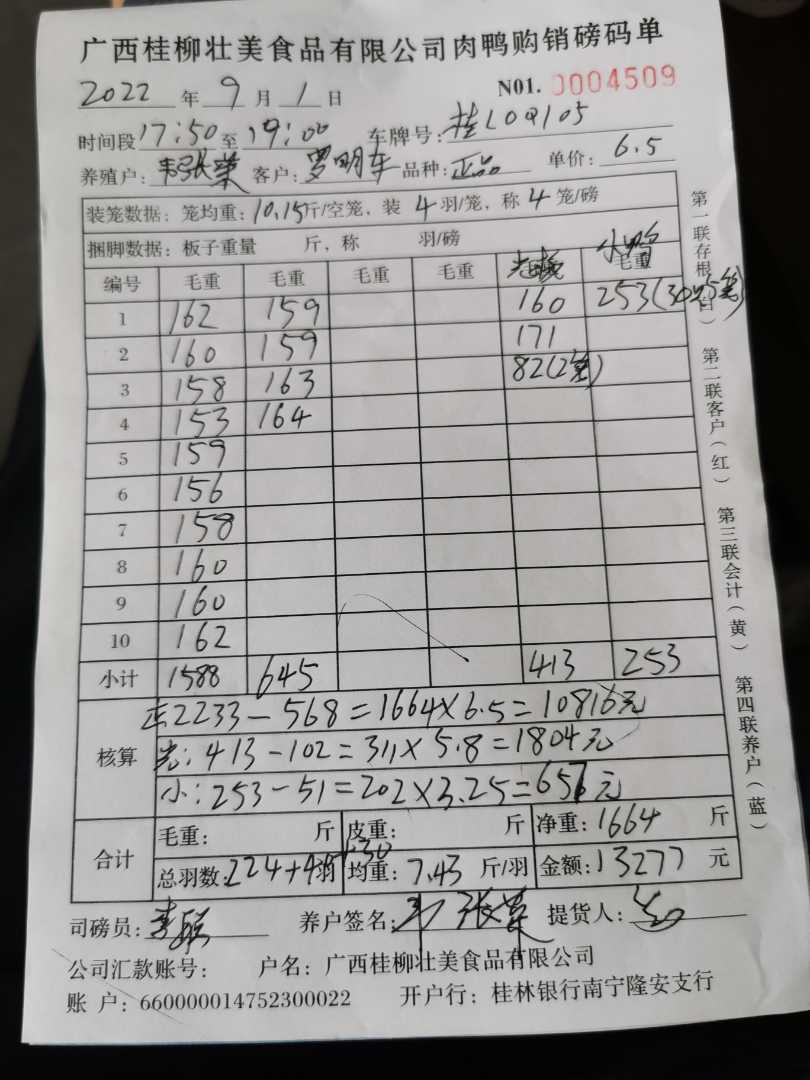 广西桂柳壮美食品有限公司肉鸭购销磅码单
2022 年 9 月 1 日 N01. 0004509
时间段 17:50 至 19:00 车牌号: 桂L0Q105
养殖户: 韦张荣 客户: 罗明车 品种: 正品 单价: 6.5
装笼数据: 笼均重: 10.15 斤/空笼, 装 4 羽/笼, 称 4 笼/磅
捆脚数据: 板子重量 斤, 称 羽/磅
编号 毛重 毛重 毛重 毛重 小鸭 毛重
1 162 159 160 253(30只5笼)
2 160 159 171
3 158 163 82(2笼)
4 153 164
5 159
6 156
7 158
8 160
9 160
10 162
小计 1588 645 413 253
核算
正2233-568=1664×6.5=10816元
光:413-102=311×5.8=1804元
小:253-51=202×3.25=657元
合计
毛重: 斤 皮重: 斤 净重: 1664 斤
总羽数: 224+48 羽 +30 均重: 7.43 斤/羽 金额: 13277 元
司磅员: 养户签名: 韦张荣 提货人:
公司汇款账号: 户名: 广西桂柳壮美食品有限公司
账 户: 660000014752300022 开户行: 桂林银行南宁隆安支行
第一联存根(白) 第二联客户(红) 第三联会计(黄) 第四联养户(蓝)